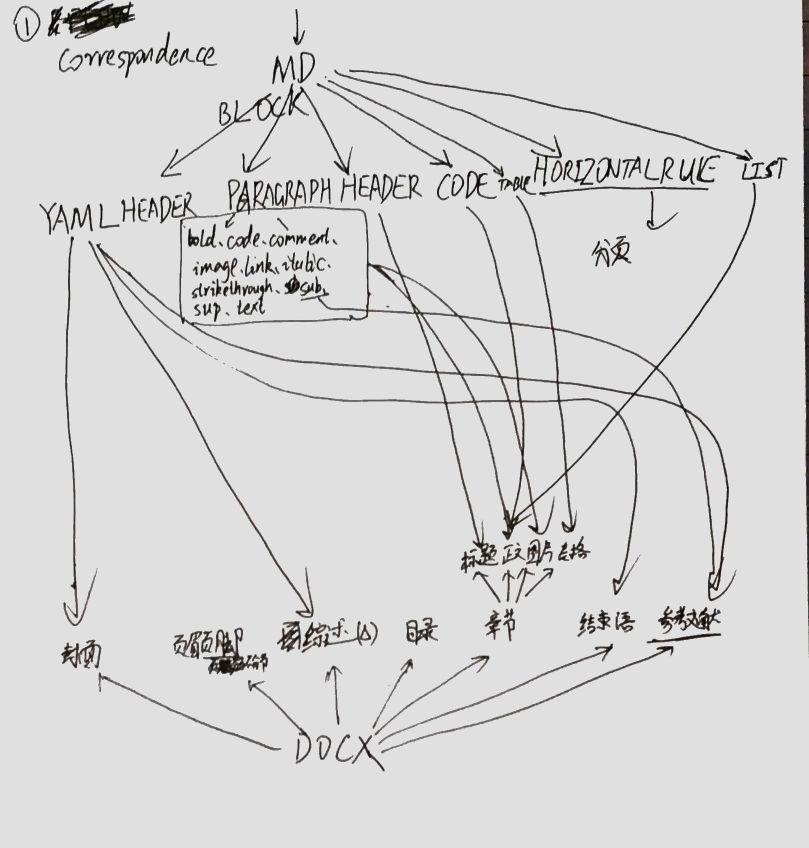 ①
Correspondence
MD
BLOCK
YAML HEADER PARAGRAPH HEADER CODE TABLE HORIZONTALRULE LIST
bold、code、comment、
image、link、itatic、
strikethrough、sub、
sup、text
分页
标题 正文 图片 表格
封面 页眉页脚 综述(A) 目录 章节 结束语 参考文献
DOCX